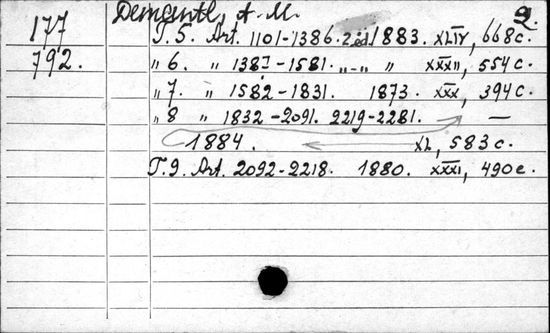 Demante, A. M. 2.
177 T. 5. Art. 1101-1386. 2 éd. 1883. XLIV, 668 c.
792. " 6. " 1387-1581. "-" " XXXII, 554 c.
" 7. " 1582-1831. 1873. XXX, 394 c.
" 8 " 1832-2091. 2219-2281. —
1884. XL, 583 c.
T. 9. Art. 2092-2218. 1880. XXXI, 490 c.